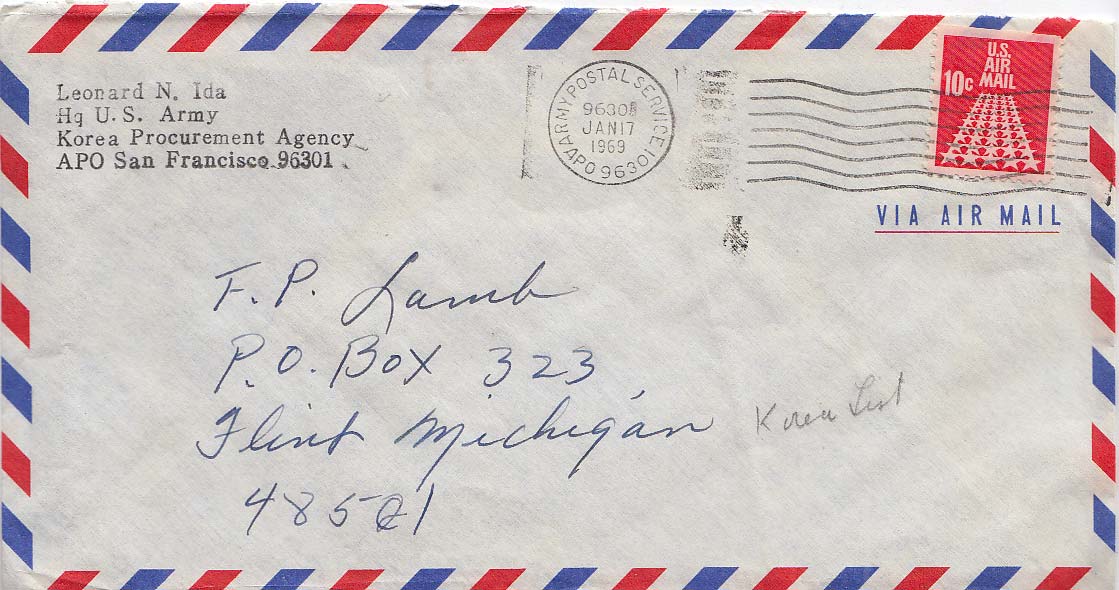 Leonard N. Ida
Hq U. S. Army
Korea Procurement Agency
APO San Francisco 96301
ARMY POSTAL SERVICE
JAN 17
1969
APO 96301
U.S.
AIR
MAIL
10c
VIA AIR MAIL
F. P. Lamb
P.O. Box 323
Flint Michigan
48501
Korea List